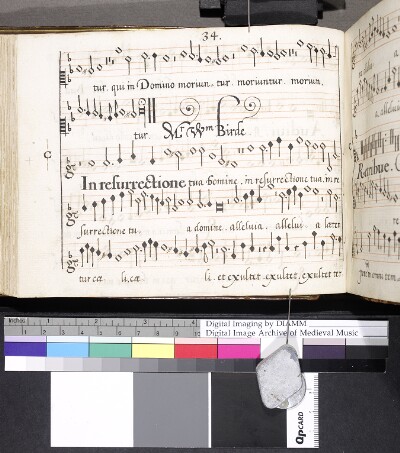 34.
tur. qui in Domino moriun. tur. moriuntur. moriun.
tur. Mr Wm Birde
C
In resurrectione tua Domine. in resurrectione tua. in re
surrectione tu. a domine. alleluia. allelui. a laeten
tur cæ li. cæ li. et exultet. exultet. exultet ter
Rambue.
inches
Digital Imaging by DIAMM
Digital Image Archive of Medieval Music
QPCARD